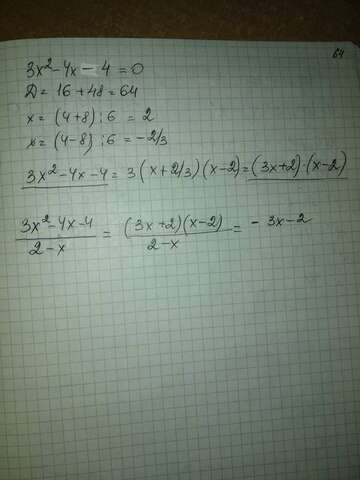 64
3x²-4x-4=0
D=16+48=64
x=(4+8):6=2
x=(4-8):6=-2/3
3x²-4x-4=3(x+2/3)(x-2)=(3x+2)·(x-2)
3x²-4x-4/2-x=(3x+2)(x-2)/2-x=-3x-2